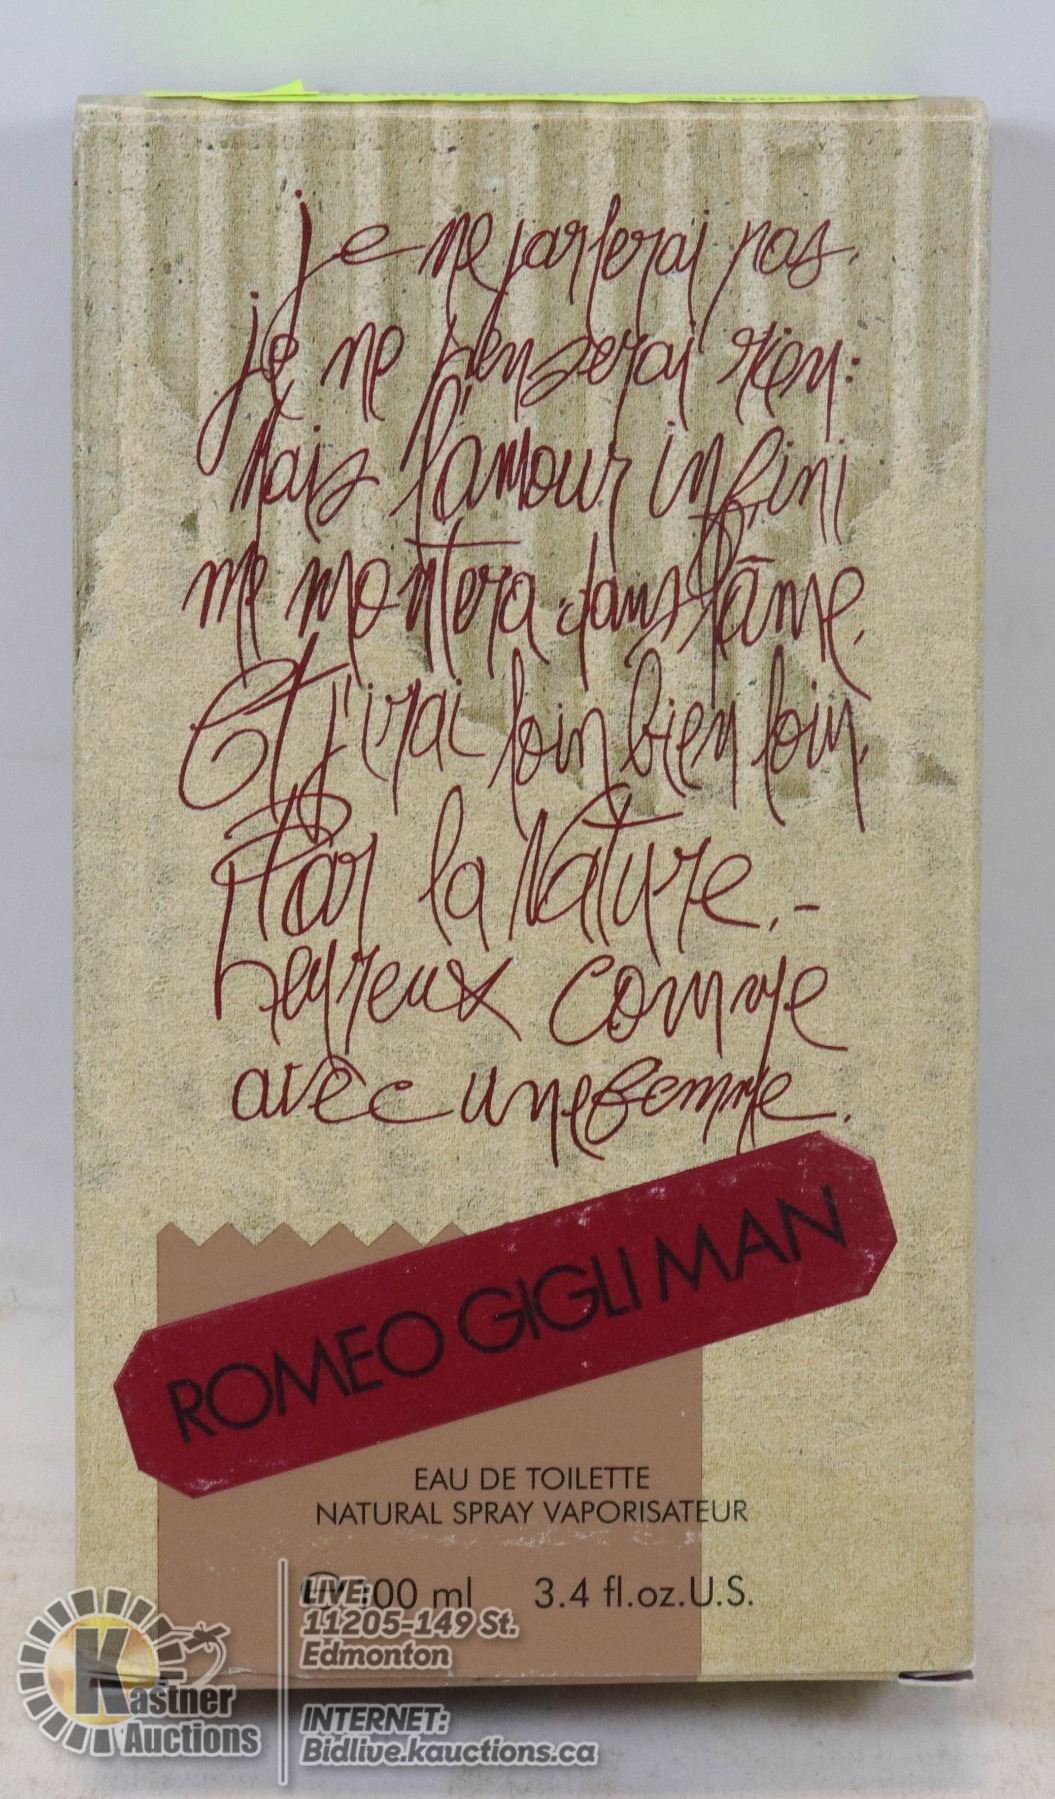 je ne parlerai pas.
je ne penserai rien:
Mais l'amour infini
me montera dans l'âme.
Et j'irai loin bien loin,
Par la Nature.-
heureux comme
avec une femme.
ROMEO GIGLI MAN
EAU DE TOILETTE
NATURAL SPRAY VAPORISATEUR
100 ml 3.4 fl.oz.U.S.
Kastner
Auctions
LIVE:
11205-149 St.
Edmonton
INTERNET:
Bidlive.kauctions.ca